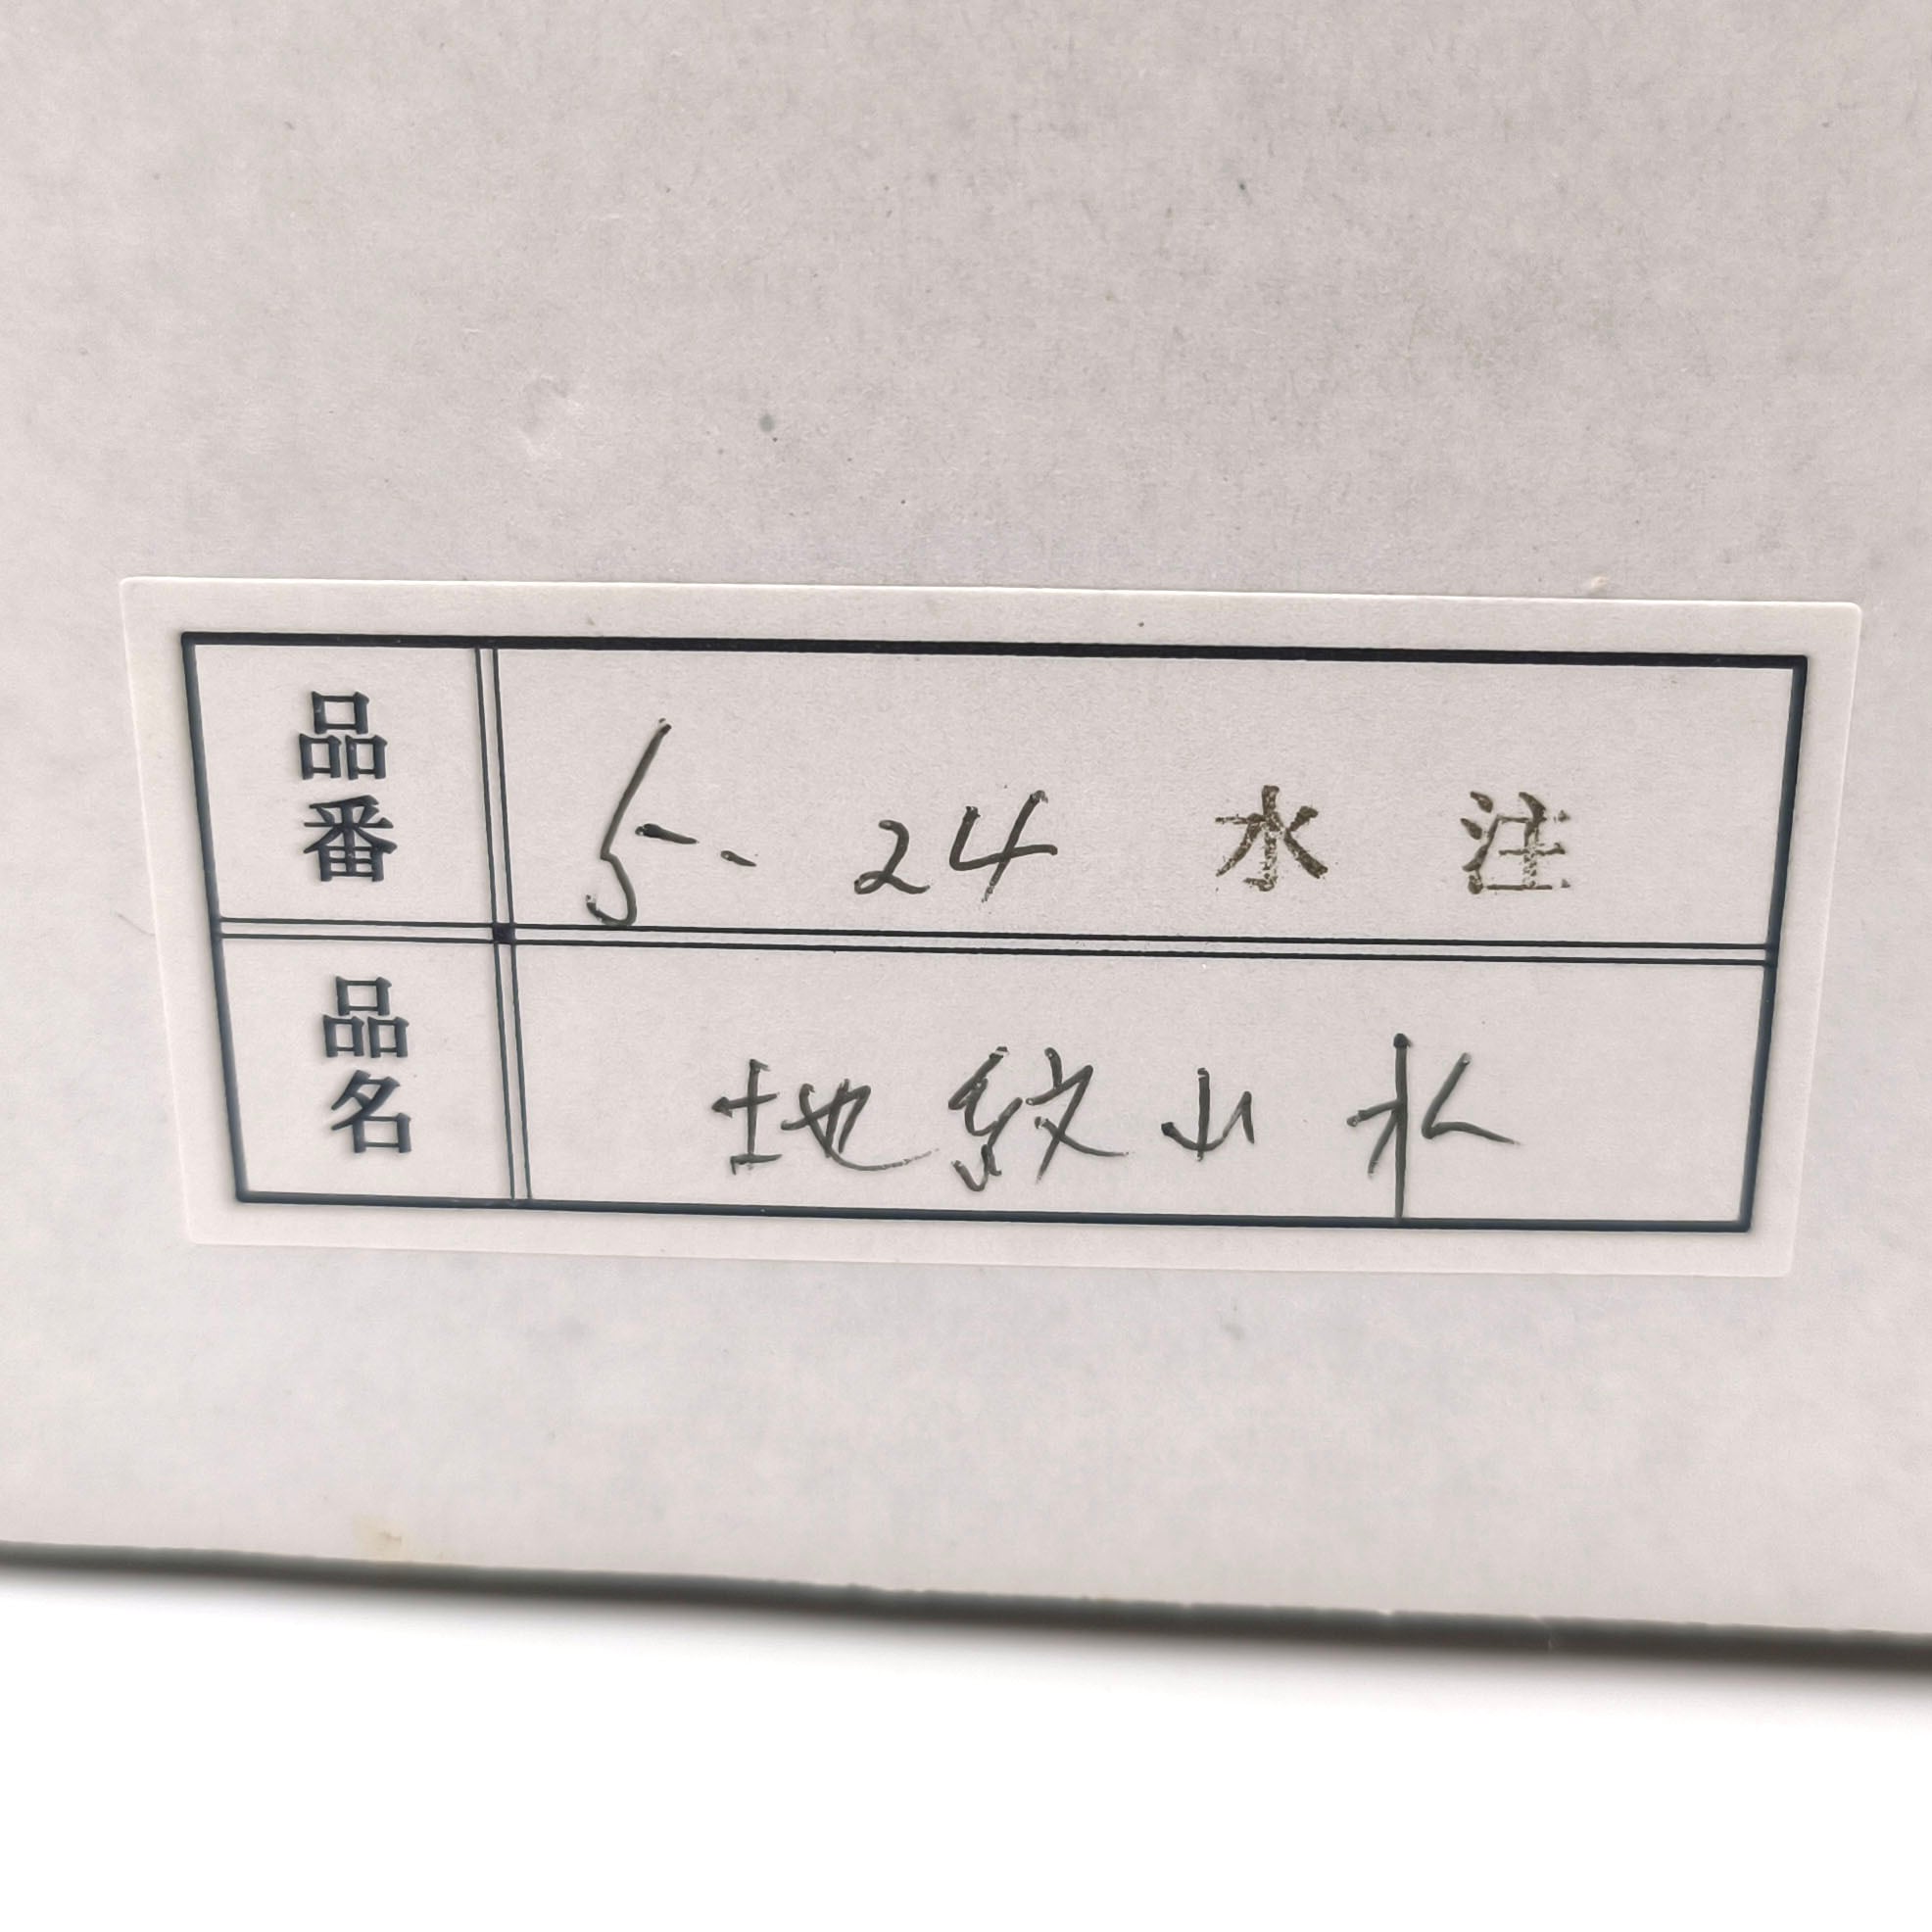 品番 5-24 水注
品名 地紋山水